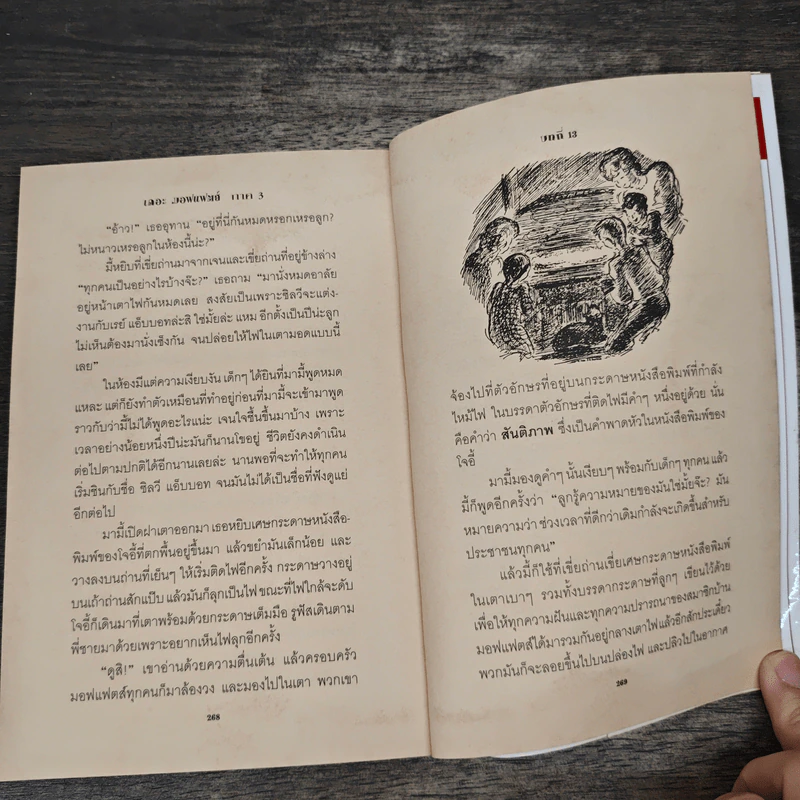 เดอะ มอฟแฟตส์ ภาค 3
“อ้าว!” เธออุทาน “อยู่ที่นี่กันหมดหรอกเหรอลูก?
ไม่หนาวเหรอลูกในห้องนี้น่ะ?”
มี้หยิบที่เขี่ยถ่านมาจากเจนและเขี่ยถ่านที่อยู่ข้างล่าง
“ทุกคนเป็นอย่างไรบ้างจ๊ะ?” เธอถาม “มานั่งหมดอาลัย
อยู่หน้าเตาไฟกันหมดเลย สงสัยเป็นเพราะซิลวีจะแต่ง-
งานกับเรย์ แอ็บบอทล่ะสิ ใช่มั้ยล่ะ แหม อีกตั้งเป็นปีน่ะลูก
ไม่เห็นต้องมานั่งเซ็งกัน จนปล่อยให้ไฟในเตามอดแบบนี้
เลย”
ในห้องมีแต่ความเงียบงัน เด็กๆ ได้ยินที่มามี้พูดหมด
แหละ แต่ก็ยังทำตัวเหมือนที่ทำอยู่ก่อนที่มามี้จะเข้ามาพูด
ราวกับว่ามี้ไม่ได้พูดอะไรแน่ะ เจนใจชื้นขึ้นมาบ้าง เพราะ
เวลาอย่างน้อยหนึ่งปีน่ะมันก็นานโขอยู่ ชีวิตยังคงดำเนิน
ต่อไปตามปกติได้อีกนานเลยล่ะ นานพอที่จะทำให้ทุกคน
เริ่มชินกับชื่อ ซิลวี แอ็บบอท จนมันไม่ได้เป็นชื่อที่ฟังดูแย่
อีกต่อไป
มามี้เปิดฝาเตาออกมา เธอหยิบเศษกระดาษหนังสือ-
พิมพ์ของโจอี้ที่ตกพื้นอยู่ขึ้นมา แล้วขยำมันเล็กน้อย และ
วางลงบนถ่านที่เย็นๆ ให้เริ่มติดไฟอีกครั้ง กระดาษวางอยู่
บนเถ้าถ่านสักแป๊บ แล้วมันก็ลุกเป็นไฟ ขณะที่ไฟใกล้จะดับ
โจอี้ก็เดินมาที่เตาพร้อมด้วยกระดาษเต็มมือ รูฟัสเดินตาม
พี่ชายมาด้วยเพราะอยากเห็นไฟลุกอีกครั้ง
“ดูสิ!” เขาอ่านด้วยความตื่นเต้น แล้วครอบครัว
มอฟแฟตส์ทุกคนก็มาล้อมวง และมองไปในเตา พวกเขา
268
บทที่ 13
จ้องไปที่ตัวอักษรที่อยู่บนกระดาษหนังสือพิมพ์ที่กำลัง
ไหม้ไฟ ในบรรดาตัวอักษรที่ติดไฟมีคำๆ หนึ่งอยู่ด้วย นั่น
คือคำว่า สันติภาพ ซึ่งเป็นคำพาดหัวในหนังสือพิมพ์ของ
โจอี้
มามี้มองดูคำๆ นั้นเงียบๆ พร้อมกับเด็กๆ ทุกคน แล้ว
มี้ก็พูดอีกครั้งว่า “ลูกรู้ความหมายของมันใช่มั้ยจ๊ะ? มัน
หมายความว่า ช่วงเวลาที่ดีกว่าเดิมกำลังจะเกิดขึ้นสำหรับ
ประชาชนทุกคน”
แล้วมี้ก็ใช้ที่เขี่ยถ่านเขี่ยเศษกระดาษหนังสือพิมพ์
ในเตาเบาๆ รวมทั้งบรรดากระดาษที่ลูกๆ เขียนไว้ด้วย
เพื่อให้ทุกความฝันและทุกความปรารถนาของสมาชิกบ้าน
มอฟแฟตส์ได้มารวมกันอยู่กลางเตาไฟ แล้วอีกสักประเดี๋ยว
พวกมันก็จะลอยขึ้นไปบนปล่องไฟ และปลิวไปในอากาศ
269